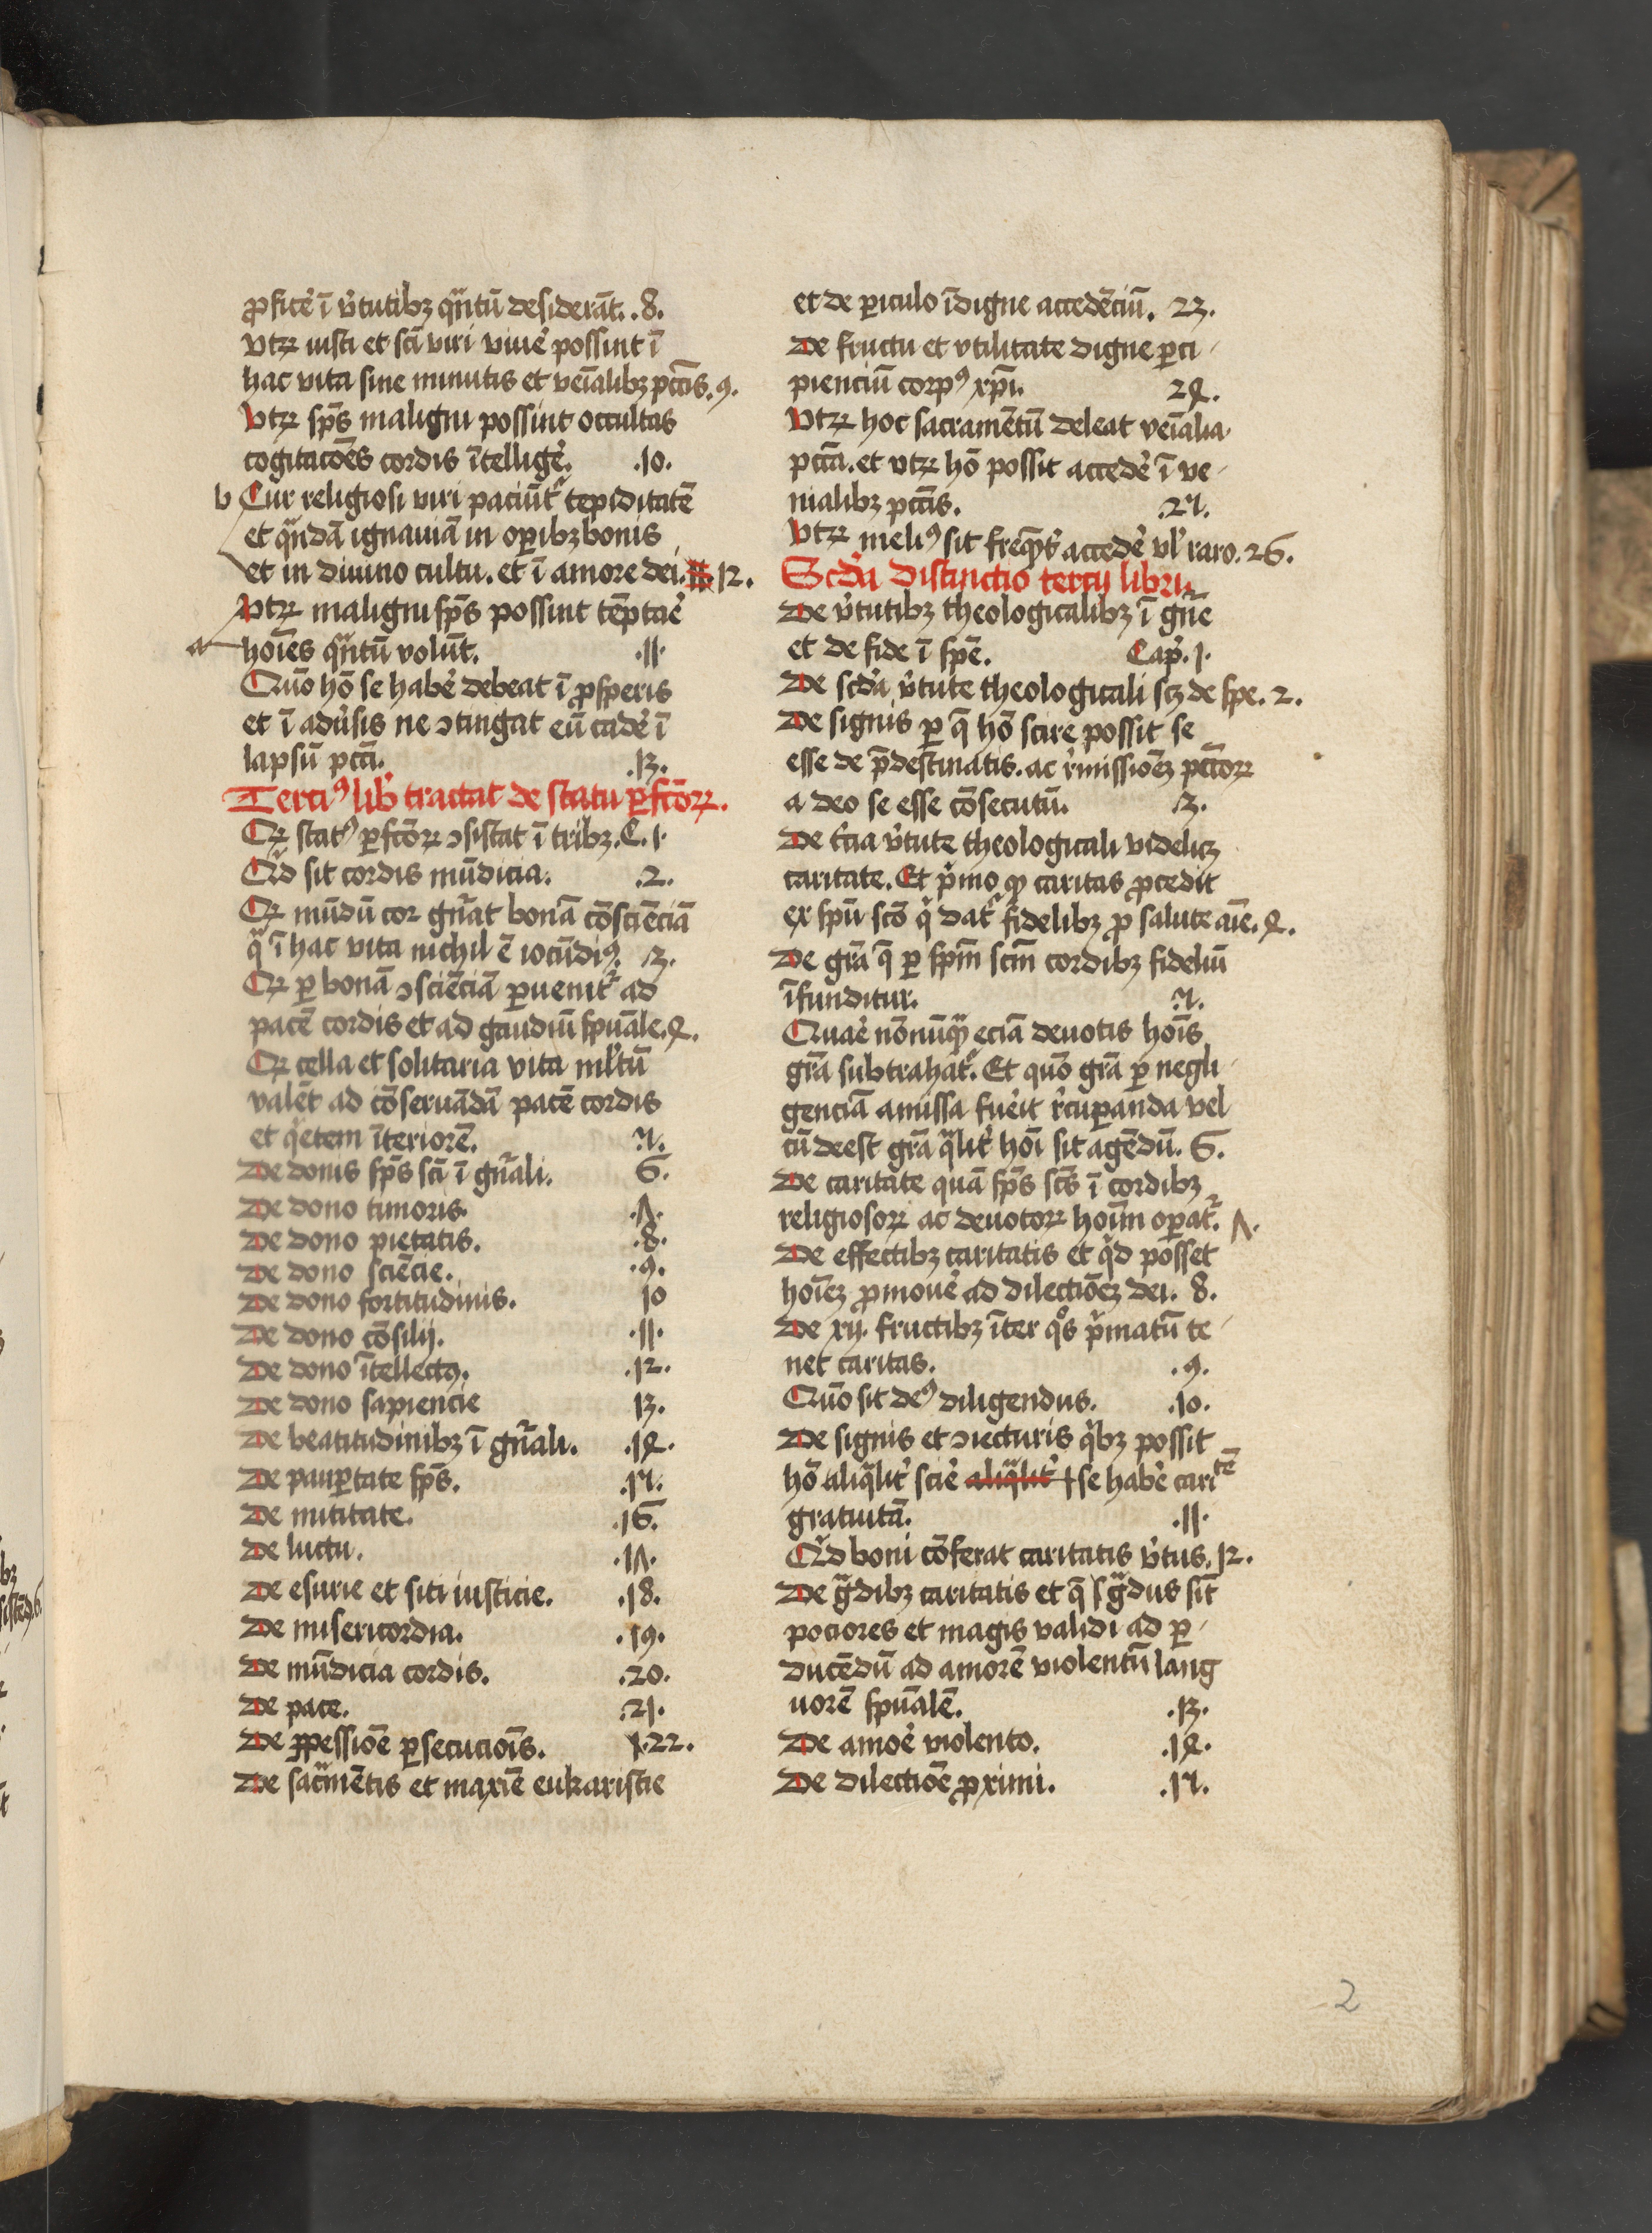 ꝓficẻ ī v̉tutibꝫ qᷓntū desiderāt. .8.
vtꝝ iusti et sc̄i viri viuẻ possint ī
hac vita sine minutis et veīalibꝫ pctīs. .9.
Vtꝝ sp̄s maligni possint occultas
cogitacōes cordis ītelligẻ. .10.
b Cur religiosi viri paciūt᷑ tepiditatē
et qᷓndā ignauiā in oꝑibꝫ bonis
et in diuino cultu. et ī amore dei. .12.
Vtꝝ maligni sp̄s possint tēptaẻ
a hoīes qᷓntū volūt. .11.
Quō hō se habẻ debeat ī ꝓsperis
et ī adv̉sis ne ↄtingat eū cadẻ ī
lapsū pctī. .13.
Terciꝰ lib̉ tractat de statu ꝑfc̄oꝝ.
Qꝝ statꝰ ꝑfc̄oꝝ ↄsistat ī tribꝫ. C. 1.
Qͥd sit cordis mūdicia. .2.
Qꝝ mūdū cor gn̉at bonā cōsciēciā
qᷓ ī hac vita nichil ē iocūdiꝰ. .3.
Qꝝ ꝑ bonā ↄsciēciā ꝑuenit᷑ ad
pacē cordis et ad gaudiū spūale. .4.
Qꝝ cella et solitaria vita ml̉tū
valēt ad cōseruādā pacē cordis
et qͥetem īteriorē. .5.
De donis sp̄s sc̄i ī gn̉ali. 6.
De dono timoris. .7.
De dono pietatis. .8.
De dono sciēcie. .9.
De dono fortitudinis. 10
De dono cōsilij. .11.
De dono ītellectꝰ. .12.
De dono sapiencie 13.
De beatitudinibꝫ ī gn̉ali. .14.
De pauꝑtate sp̄s. .15.
De mititate. .16.
De luctu. .17.
De esurie et siti iusticie. .18.
De misericordia. .19.
De mūdicia cordis. .20.
De pace. .21.
De ꝑpessiōe ꝑsecucioīs. .22.
De sacᷓmētis et maxīe eukaristie
et de ꝑiculo īdigne accedēciū. 23.
De fructu et vtilitate digne ꝑci-
pienciū corpꝰ xp̄i. 24.
Vtꝝ hoc sacramētū deleat veīalia
pctā. et vtꝝ hō possit accedẻ ī ve-
nialibꝫ pctīs. .25.
Vtꝝ meliꝰ sit freqͣ̄t̉ accedẻ vl̉ raro. 26.
Scd̉a Distinctio tercij libri
De v̉tutibꝫ theologicalibꝫ ī gn̉e
et de fide ī spē. Cap̉. 1.
De scd̉a v̉tute theologicali scꝫ de spe. 2.
De signis ꝑ q̄ hō scire possit se
esse de p̄destinatis. ac r̉missiōeꝫ pctōꝝ
a deo se esse cōsecutū. .3.
De t̉cia v̉tute theologicali videlicꝫ
caritate. Et pͥmo ꝙ caritas ꝓcedit
ex spū scō qͥ dat᷑ fidelibꝫ ꝓ salute aīe. .4.
De grā q̄ ꝑ spm̄ scm̄ cordibꝫ fideliū
īfunditur. .5.
Quaẻ nōnūqᷓ eciā deuotis hoīs
grā subtrahat᷑. Et quō grā ꝑ negli-
genciā amissa fuẻit r̉cuꝑanda vel
cū deest grā qᷓlit̉ hoī sit agēdū. 6.
De caritate quā sp̄s scs̄ ī cordibꝫ
religiosoꝝ ac deuotoꝝ hoīm oꝑat᷑. 7.
De effectibꝫ caritatis et qͥd posset
hoīeꝫ ꝓmouẻ ad dilectiōeꝫ dei. 8.
De xij. fructibꝫ īter qͦs pͥmatū te-
net caritas. .9.
Quō sit deꝰ diligendus. .10.
De signis et ↄiecturis qͥbꝫ possit
hō aliqᷓlit̉ sciẻ aliqᷓlit̉ se habẻ caritē
gratuitā. .11.
Qͥd boni cōferat caritatis v̉tus. 12.
De gᷓdibꝫ caritatis et q̄ gᷓdus sīt
pociores et magis validi ad ꝑ-
ducēdū ad amorē violentū lang
uorē spūalē. .13.
De amoẻ violento. .14.
De dilectiōe ꝓximi. .15.
2